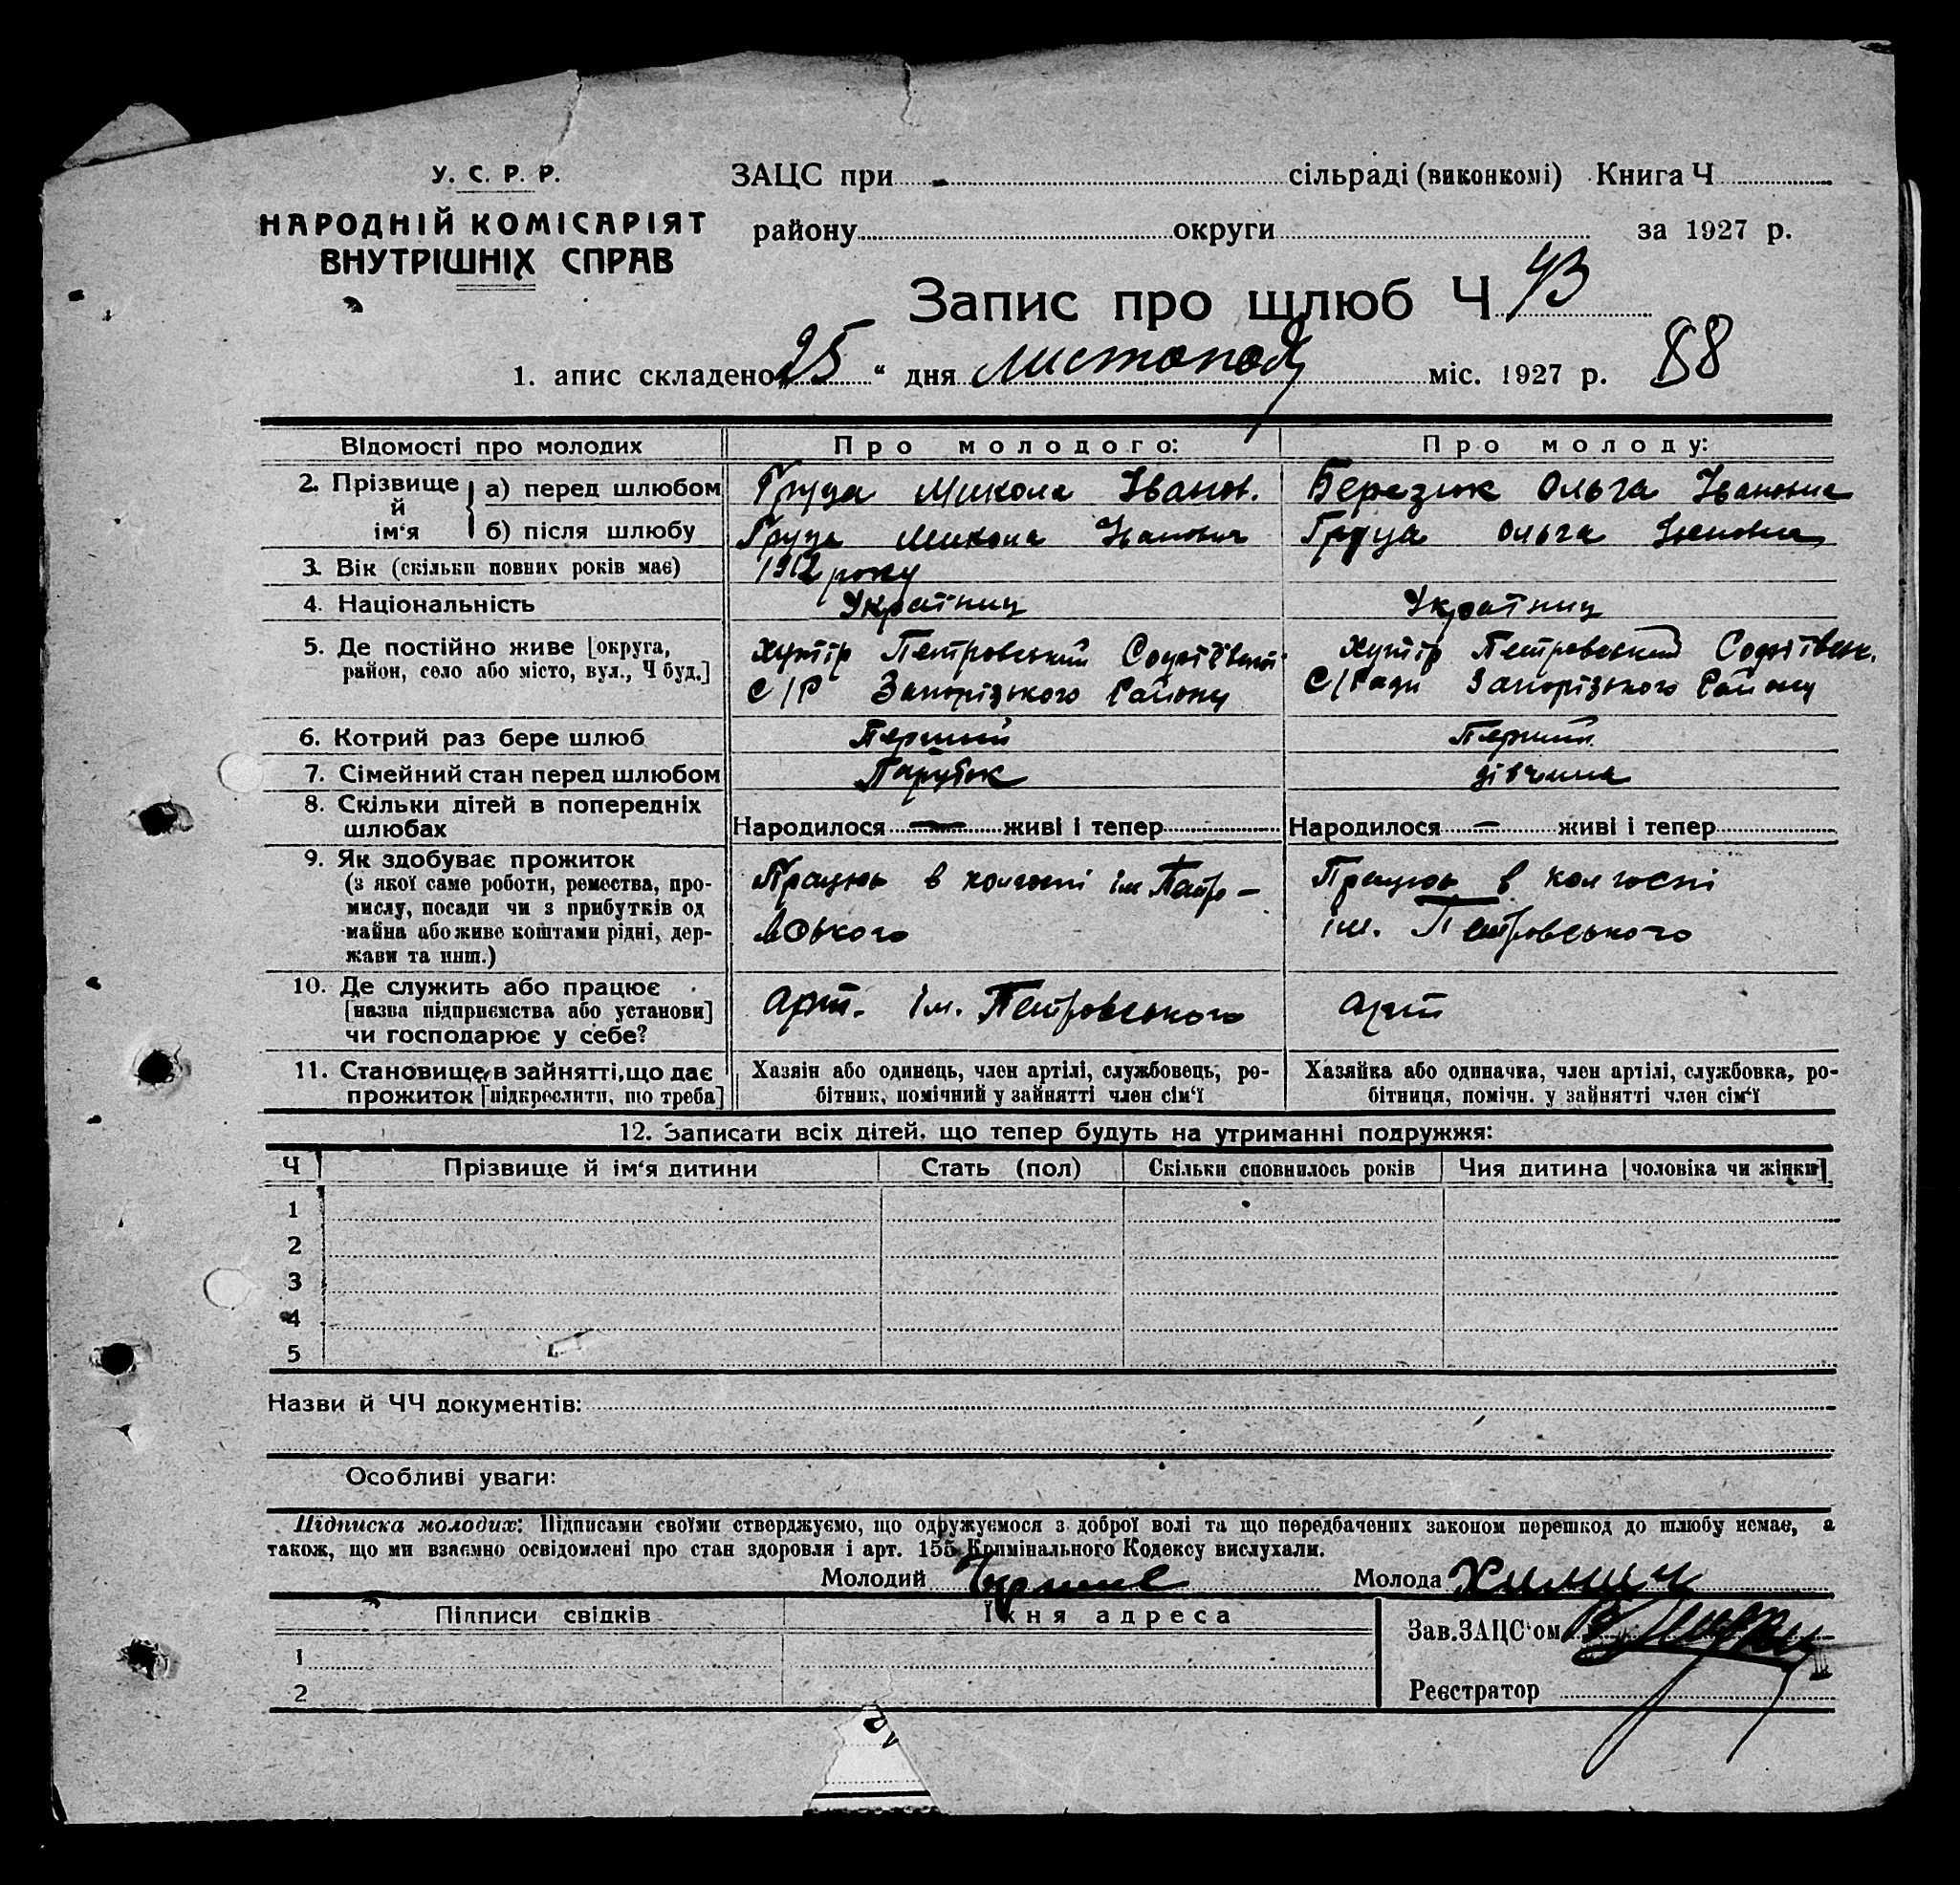 У. С. Р. Р.
НАРОДНІЙ КОМІСАРІЯТ
ВНУТРІШНІХ СПРАВ
ЗАЦС при - сільраді (виконкомі) Книга Ч
району округи за 1927 р.
Запис про шлюб Ч 43
1. апис складено 25 “ дня листопад міс. 1927 р. 88
Відомості про молодих Про молодого: Про молоду:
2. Прізвище й ім‘я
а) перед шлюбом Груца Микола Іванов. Березюк Ольга Івановна
б) після шлюбу Груца Микола Іванович Груца Ольга Івановна
3. Вік (скільки повних років має) 1912 року
4. Національність Українец Українец
5. Де постійно живе [округа, район, село або місто, вул., Ч буд.]
хутір Петровський
С/Р Запорізького Району
хутір Петровський
С/Ради Запорізького Району
6. Котрий раз бере шлюб Перший Перший
7. Сімейний стан перед шлюбом Парубок дівчина
8. Скільки дітей в попередніх шлюбах
Народилося — живі і тепер Народилося — живі і тепер
9. Як здобуває прожиток
(з якої саме роботи, ремества, про-
мислу, посади чи з прибутків од
майна або живе коштами рідні, дер-
жави та инш.)
Працює в колгоспі ім Петро-
вського
Працює в колгоспі
ім. Петровського
10. Де служить або працює
[назва підприємства або установи]
чи господарює у себе?
арт. ім. Петровського
арт
11. Становище в зайнятті, що дає
прожиток [підкреслити, що треба]
Хазяїн або одинець, член артілі, службовець, ро-
бітник, помічний у зайнятті член сім‘ї
Хазяйка або одиначка, член артілі, службовка, ро-
бітниця, помічн. у зайнятті член сім‘ї
12. Записати всіх дітей, що тепер будуть на утриманні подружжя:
Ч Прізвище й ім‘я дитини Стать (пол) Скільки сповнилось років Чия дитина [чоловіка чи жінки]
1
2
3
4
5
Назви й ЧЧ документів:
Особливі уваги:
Підписка молодих: Підписами своїми стверджуємо, що одружуємося з доброї волі та що передбачених законом перешкод до шлюбу немає, а
також, що ми взаємно освідомлені про стан здоровля і арт. 155 Кримінального Кодексу вислухали.
Молодий Молода
Підписи свідків Їхня адреса
1
2
Зав.ЗАЦС‘ом
Реєстратор